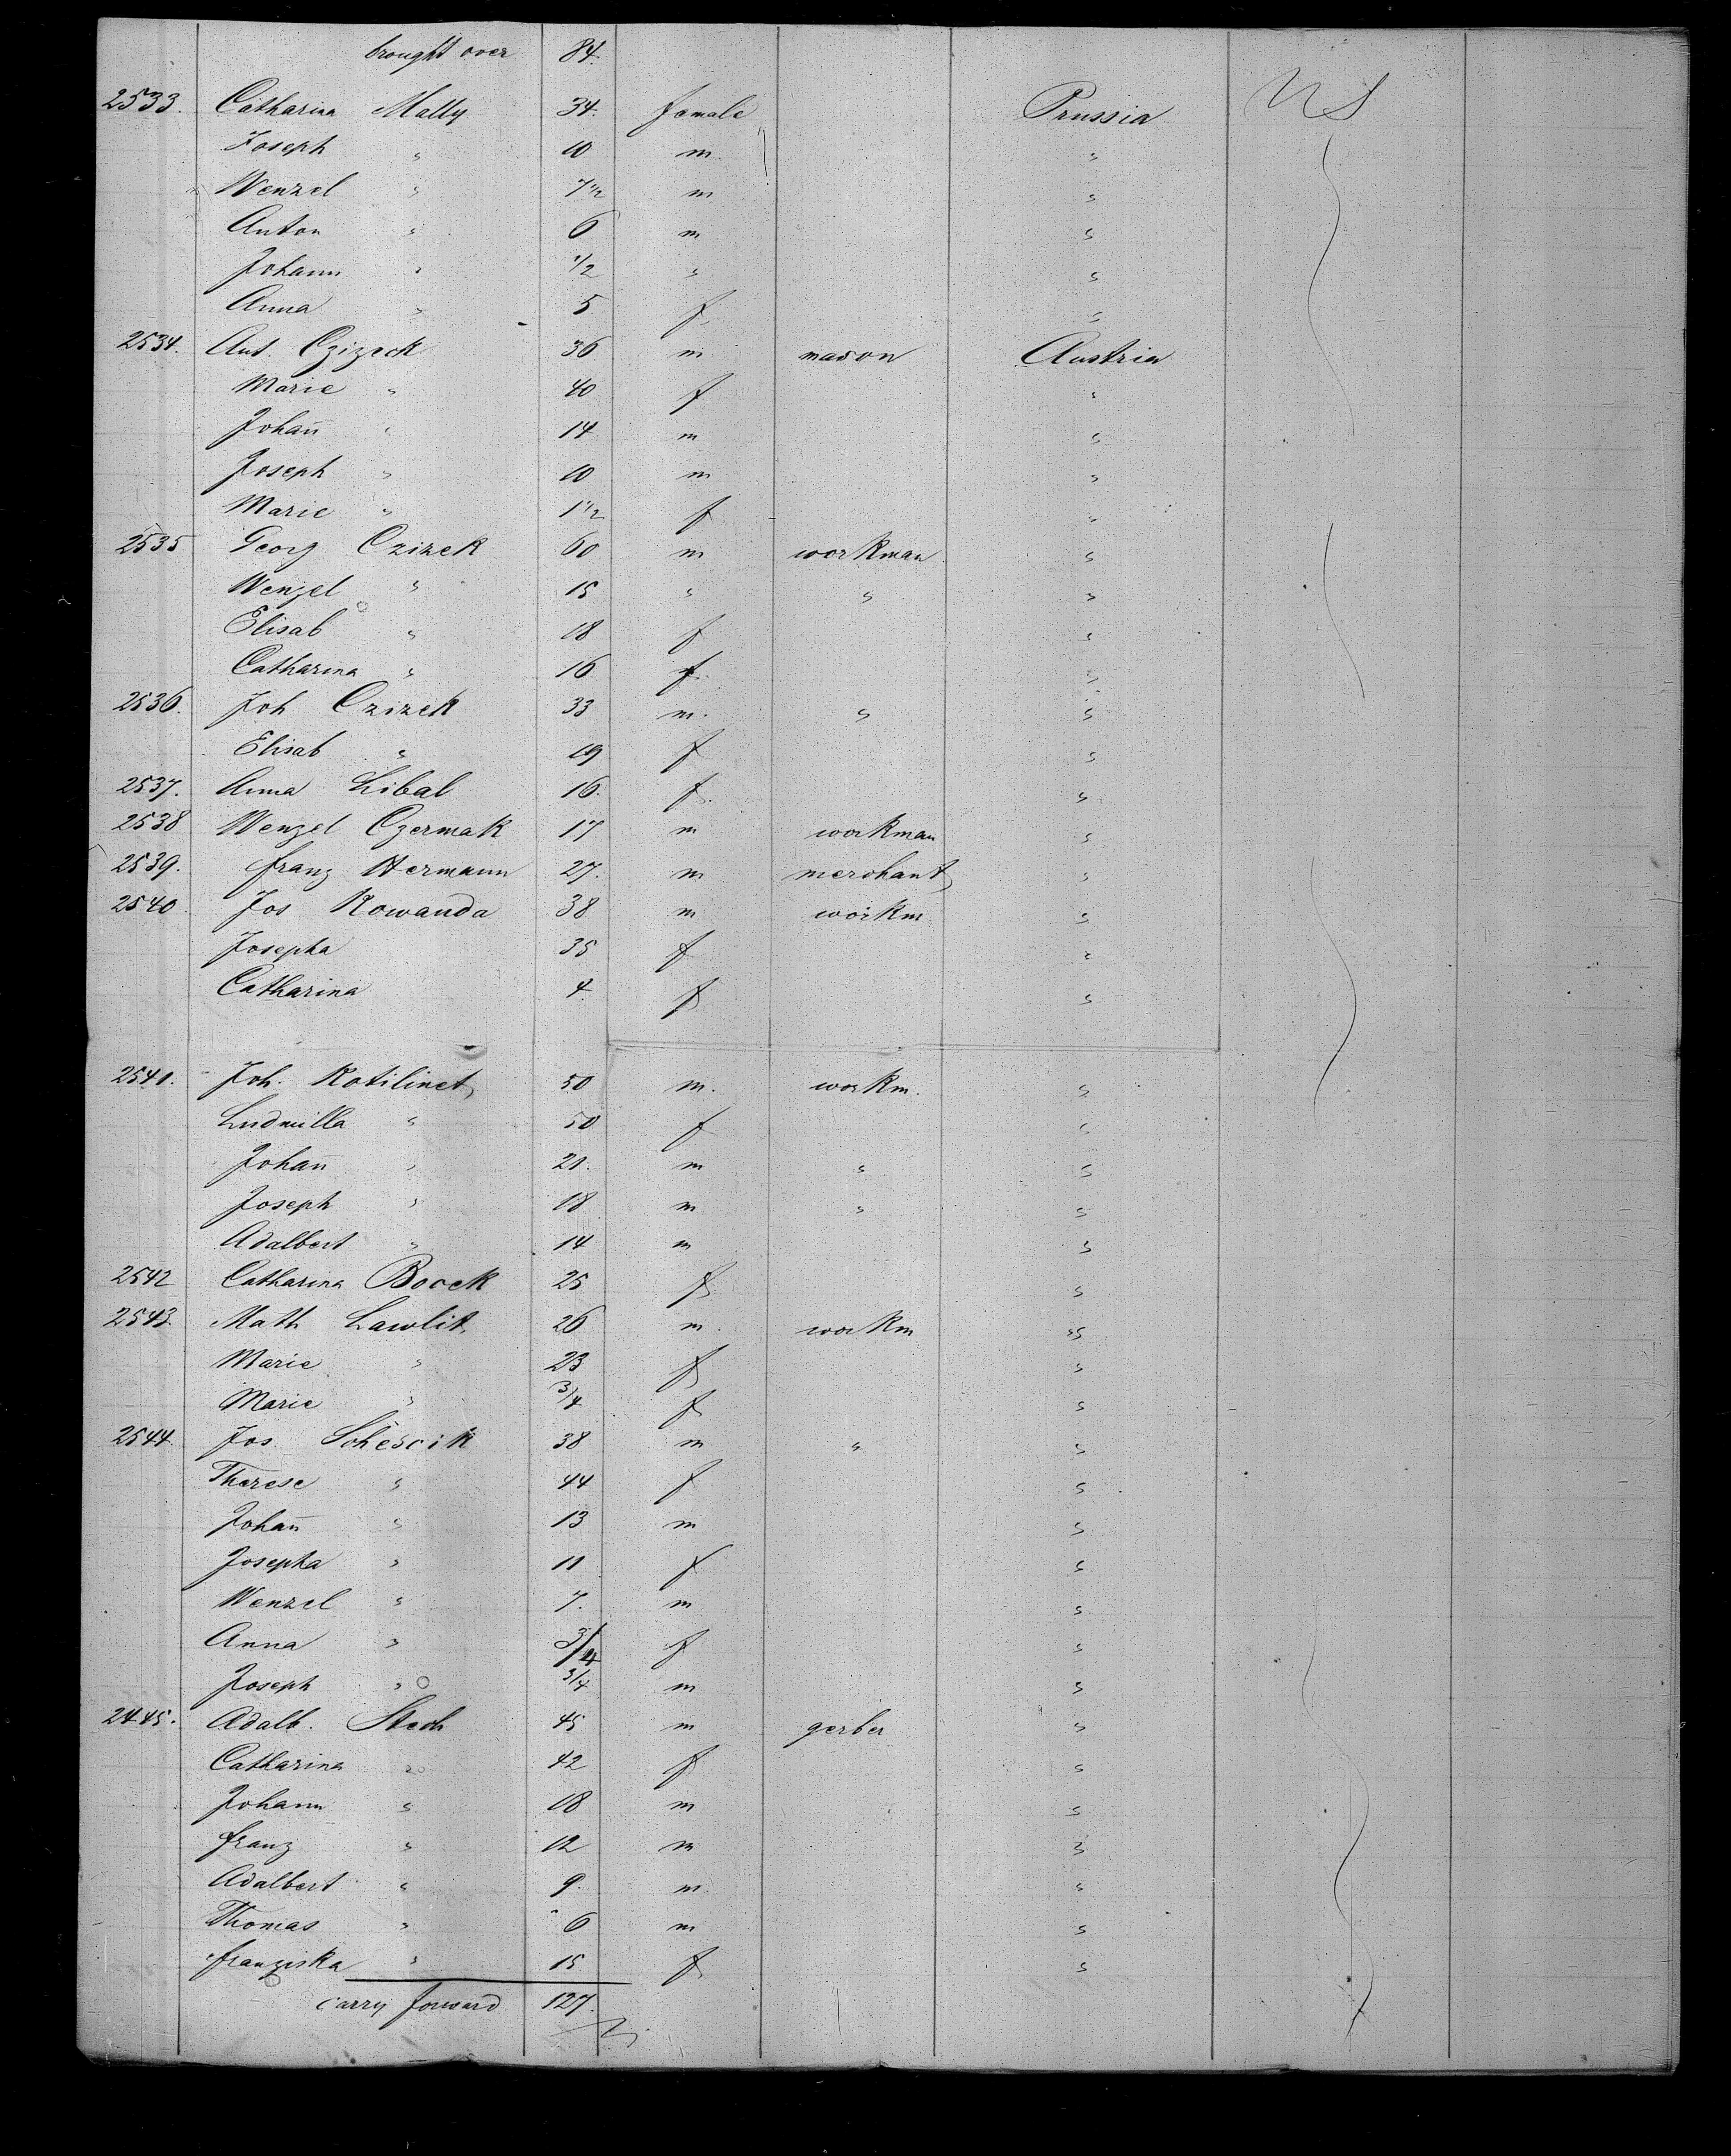 brought over 84.
2533. Catharina Mally 34. female Prussia US
Joseph " 10 m. "
Wenzel " 7 1/2 m "
Anton " 6 m "
Johann " 1/2 " "
Anna " 5 f. "
2534. Ant. Czizeck 36 m mason Austria
Marie " 40 f "
Johañ " 14 m "
Joseph " 10 m "
Marie " 1 1/2 f "
2535 Georg Czizek 60 m workman "
Wenzel " 15 " " "
Elisab " 18 f "
Catharina " 16 f. "
2536. Joh Czizek 33 m. " "
Elisab " 19 f "
2537. Anna Libal 16. f. "
2538 Wenzel Czermak 17 m workman "
2539. Franz Hermann 27. m merchant "
2540 Jos Kowanda 38 m workm "
Josepha 35 f "
Catharina 4. f "
2541. Joh. Kotilinet 50 m. workm. "
Ludmilla " 50 f "
Johañ " 21. m " "
Joseph " 18 m " "
Adalbert " 14 m "
2542 Catharina Bocek 25 f "
2543. Math Lawlit 26 m. workm "
Marie " 23 f "
Marie " 3/4 f "
2544. Jos. Schescik 38 m " "
Therese " 44 f "
Johañ " 13 m "
Josepha " 11 f "
Wenzel " 7. m "
Anna " 3/4 f "
Joseph " 3/4 m "
2445. Adalb. Stech 45 m gerber "
Catharina " 42 f "
Johann " 18 m "
Franz " 12 m "
Adalbert " 9. m. "
Thomas " 6 m "
Franziska " 15 f "
carry forward 127.